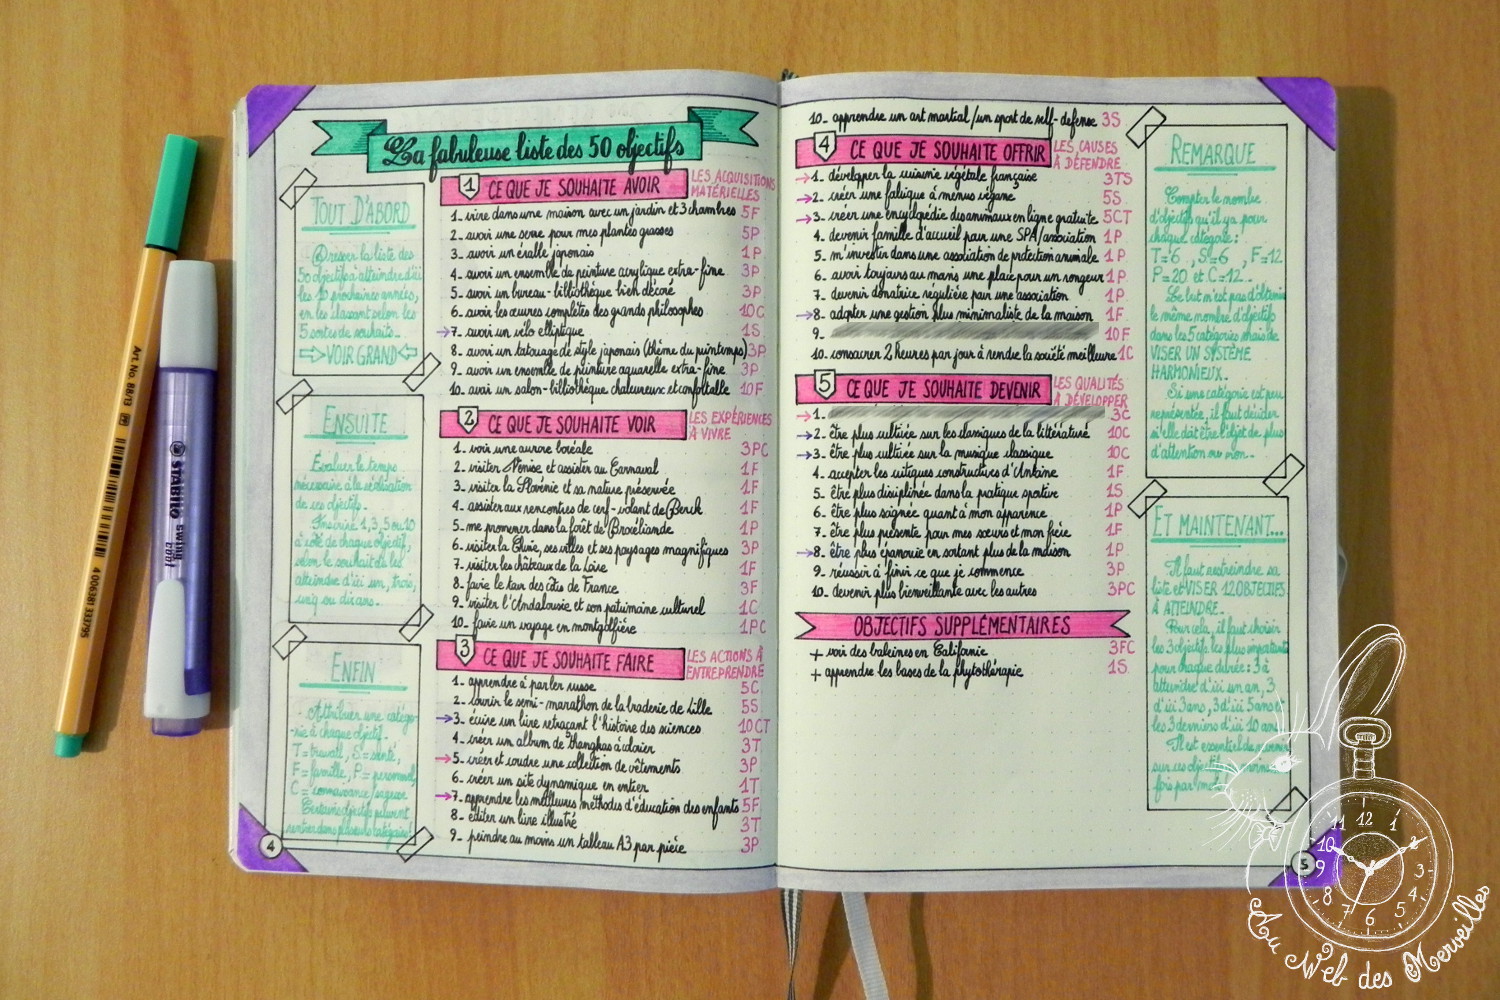 La fabuleuse liste des 50 objectifs
TOUT D'ABORD
Dresser la liste des
50 objectifs à atteindre d'ici
les 10 prochaines années,
en les classant selon les
5 sortes de souhaits.
VOIR GRAND
ENSUITE
Évaluer le temps
nécessaire à la réalisation
de ces objectifs.
Inscrire 1, 3, 5 ou 10
à côté de chaque objectif,
selon le souhait de les
atteindre d'ici un, trois,
cinq ou dix ans.
ENFIN
Attribuer une catégo-
rie à chaque objectif.
T = travail, S = santé,
F = famille, P = personnel,
C = connaissance/
Certains objectifs peuvent
rentrer dans plusieurs catégories.
1 CE QUE JE SOUHAITE AVOIR LES ACQUISITIONS
MATÉRIELLES
1. vivre dans une maison avec un jardin et 3 chambres 5F
2. avoir une serre pour mes plantes grasses 5P
3. avoir un érable japonais 1P
4. avoir un ensemble de peinture acrylique extra-fine 3P
5. avoir un bureau-bibliothèque bien décoré 3P
6. avoir les œuvres complètes des grands philosophes 10C
→ 7. avoir un vélo elliptique 1S
8. avoir un tatouage de style japonais (thème du printemps) 3P
9. avoir un ensemble de peinture aquarelle extra-fine 3P
10. avoir un salon-bibliothèque chaleureux et confortable 10F
2 CE QUE JE SOUHAITE VOIR LES EXPÉRIENCES
À VIVRE
1. voir une aurore boréale 3PC
2. visiter Venise et assister au Carnaval 1F
3. visiter la Slovénie et sa nature préservée 1F
4. assister aux rencontres de cerf-volant de Berck 1F
5. me promener dans la forêt de Brocéliande 1P
6. visiter la Chine, ses villes et ses paysages magnifiques 3P
7. visiter les châteaux de la Loire 1F
8. faire le tour des côtes de France 3F
9. visiter l'Andalousie et son patrimoine culturel 1C
10. faire un voyage en montgolfière 1PC
3 CE QUE JE SOUHAITE FAIRE LES ACTIONS À
ENTREPRENDRE
1. apprendre à parler russe 5C
2. courir le semi-marathon de la braderie de Lille 5S
→ 3. écrire un livre retraçant l'histoire des sciences 10CT
4. créer un album de thangkas à colorier 3T
→ 5. créer et coudre une collection de vêtements 3P
6. créer un site dynamique en entier 1T
→ 7. apprendre les meilleures méthodes d'éducation des enfants 5F
8. éditer un livre illustré 3T
9. peindre au moins un tableau A3 par pièce 3P
4
10. apprendre un art martial/un sport de self-defense 3S
4 CE QUE JE SOUHAITE OFFRIR LES CAUSES
À DÉFENDRE
→ 1. développer la cuisine végétale française 3TS
→ 2. créer une fabrique à menus végane 5S
→ 3. créer une encyclopédie des animaux en ligne gratuite 5CT
4. devenir famille d'accueil pour une SPA/association 1P
5. m'investir dans une association de protection animale 1P
6. avoir toujours au moins une place pour un rongeur 1P
7. devenir donatrice régulière par une association 1P
→ 8. adopter une gestion plus minimaliste de la maison 1F
9. 10F
10. consacrer 2 heures par jour à rendre la société meilleure 1C
5 CE QUE JE SOUHAITE DEVENIR LES QUALITÉS
À DÉVELOPPER
→ 1. 3C
→ 2. être plus cultivée sur les classiques de la littérature 10C
→ 3. être plus cultivée sur la musique classique 10C
4. accepter les critiques constructives d'Antoine 1F
5. être plus disciplinée dans la pratique sportive 1S
6. être plus soignée quant à mon apparence 1P
7. être plus présente pour mes sœurs et mon frère 1F
→ 8. être plus épanouie en sortant plus de la maison 1P
9. réussir à finir ce que je commence 3P
10. devenir plus bienveillante avec les autres 3PC
OBJECTIFS SUPPLÉMENTAIRES
+ voir des baleines en Californie 3FC
+ apprendre les bases de la phytothérapie 1S
REMARQUE
Compter le nombre
d'objectifs qu'il y a pour
chaque catégorie :
T=6, S=6, F=12
P=20 et C=12.
Le but n'est pas d'obtenir
le même nombre d'objectifs
dans les 5 catégories mais de
VISER UN SYSTÈME
HARMONIEUX.
Si une catégorie est peu
représentée, il faut décider
si elle doit être l'objet de plus
d'attention ou non.
ET MAINTENANT...
Il faut restreindre sa
liste et VISER 12 OBJECTIFS
À ATTEINDRE.
Pour cela, il faut choisir
les 3 objectifs les plus importants
pour chaque durée : 3 à
atteindre d'ici un an, 3
d'ici 3 ans, 3 d'ici 5 ans et
les 3 derniers d'ici 10 ans.
Il est essentiel de
sur ces objectifs
fois par
5
Art. No. 88/13
4 006381 333795
STABILO
swing
cool
12
11 1
10 2
9 3
8 4
7 6 5
Au Web des Merveilles